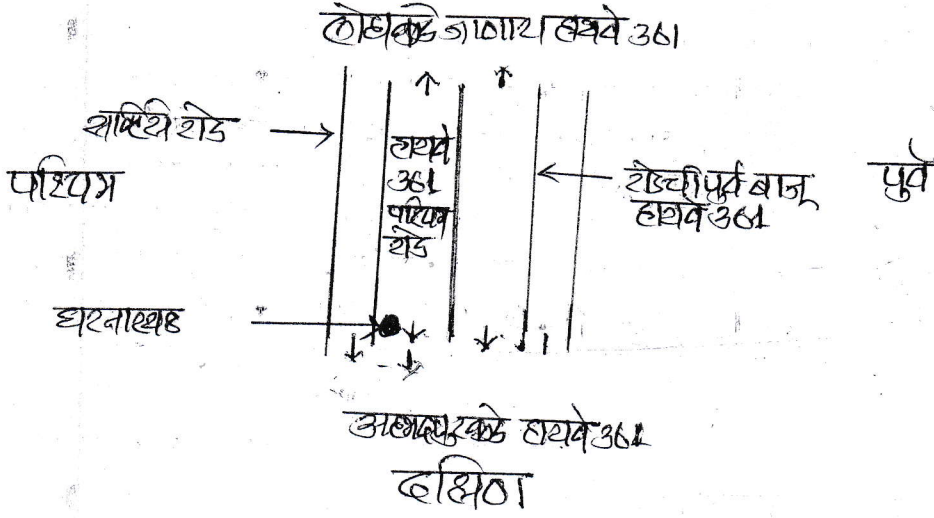 लोहाकडे जाणारा हायवे 361
सर्व्हिस रोड
हायवे
361
पश्चिम
रोड
पश्चिम
रोडची पुर्व बाजू
हायवे 361
पुर्व
घटनास्थळ
अहमदपुरकडे हायवे 361
दक्षिण